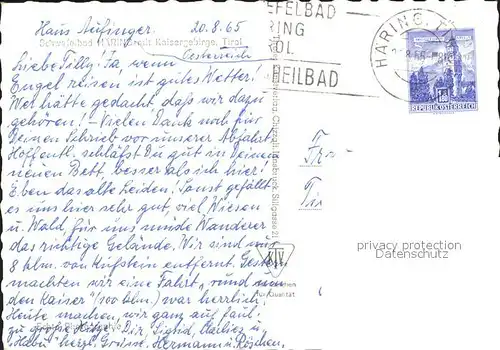 Haus Aufinger. 20.8.65
Schwefelbad HÄRING Kaisergebirge, Tirol
Österreich
Liebe Tilly! Ja wenn
Engel reisen ist gutes Wetter!
Wer hätte gedacht, dass wir dazu
gehören! - Vielen Dank noch für
Deinen Schrieb vor unserer Abfahrt
Hoffentl. schläfst Du gut in Deinem
neuen Bett, besser als ich hier!
Eben das alte Leiden! Sonst gefällt
es uns hier sehr gut, viel Wiesen
u. Wald, für uns müde Wanderer
das richtige Gelände. Wir sind nur
8 klm. von Kufstein entfernt. Gestern
machten wir eine Fahrt "rund um
den Kaiser" (100 klm.) war herrlich,
Heute machen wir ganz auf faul.
zu große Hitze. Dir, Sigrid,
Habu herzl. Grüsse, Hermann u. Röschen.
EFELBAD
RING
ROL
HEILBAD
HÄRING, TI
REPUBLIK ÖSTERREICH
Innsbruck, Sillgasse 21
für Qualität
privacy protection
Datenschutz